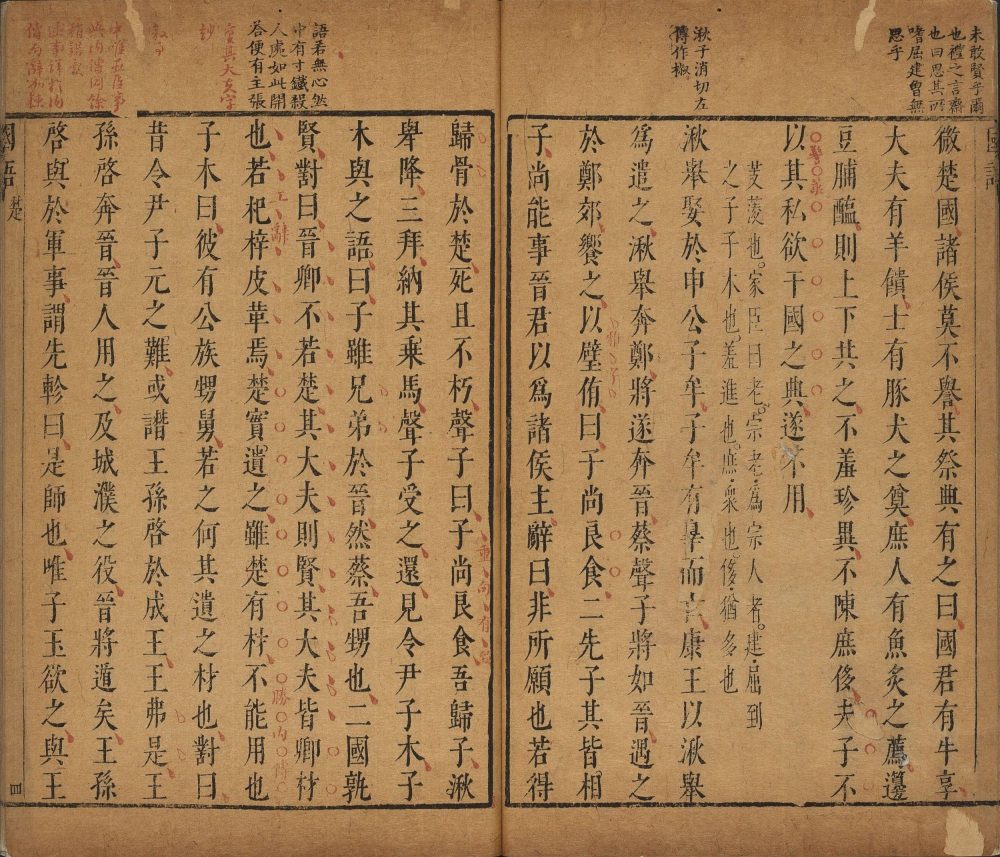 未敢賢乎爾
也禮之言齋
也曰思其所
嗜屈建曾無
思乎
湫子消切左
傳作椒
微楚國諸侯莫不譽其祭典有之曰國君有牛享
大夫有羊饋士有豚犬之奠庶人有魚炙之薦籩
豆脯醢則上下共之不羞珍異不陳庶侈夫子不
以其私欲干國之典遂不用
芰蔆也家臣曰老宗老為宗人者建屈到
之子子木也羞進也庶衆也侈猶多也
湫舉娶於申公子牟子牟有辠而亡康王以湫舉
爲遣之湫舉奔鄭將遂奔晉蔡聲子將如晉遇之
於鄭郊饗之以璧侑曰子尚良食二先子其皆相
子尚能事晉君以爲諸侯主辭曰非所願也若得
語若無心然
中有寸鐵殺
人處如此開
荅便有主張
歸骨於楚死且不朽聲子曰子尚良食吾歸子湫
舉降三拜納其乘馬聲子受之還見令尹子木子
木與之語曰子雖兄弟於晉然蔡吾甥也二國孰
賢對曰晉卿不若楚其大夫則賢其大夫皆卿材
也若杞梓皮革焉楚實遺之雖楚有材不能用也
子木曰彼有公族甥舅若之何其遺之材也對曰
昔令尹子元之難或譖王孫啓於成王王弗是王
孫啓奔晉晉人用之及城濮之役晉將遁矣王孫
啓與於軍事謂先軫曰是師也唯子玉欲之與王
國語
楚
四